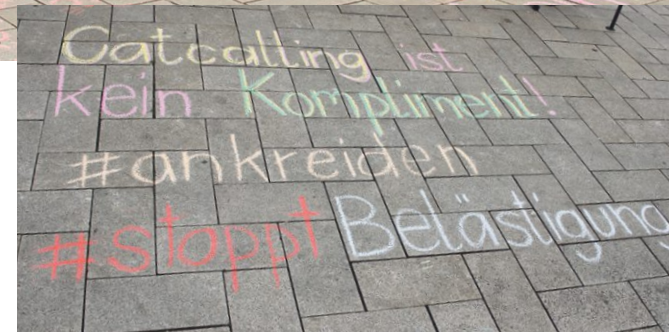 Catcalling ist
kein Kompliment!
#ankreiden
#stoppt Belästigung